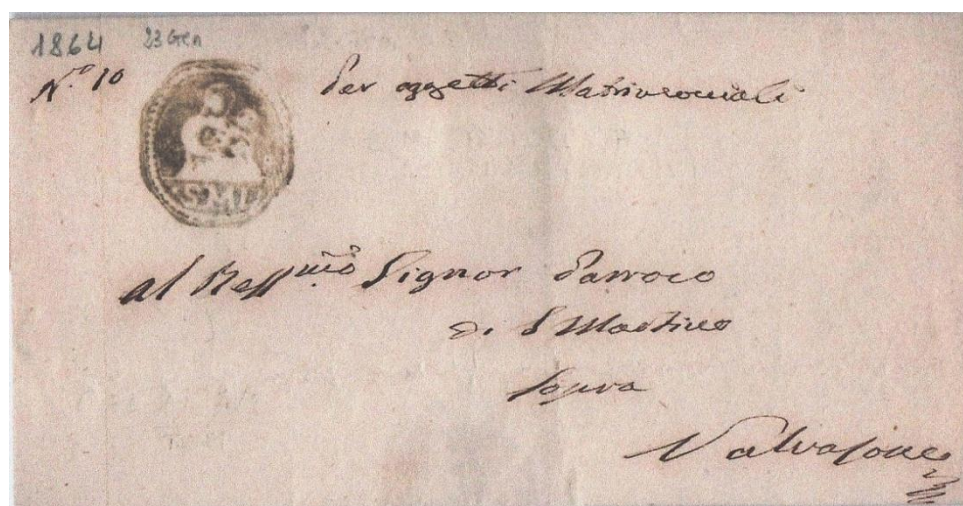 1864 23 Gen
N.º 10
Per oggetti Matrimoniali
SMV
al Ress.mo Signor Parroco
di S Martino
sopra
Valvasone